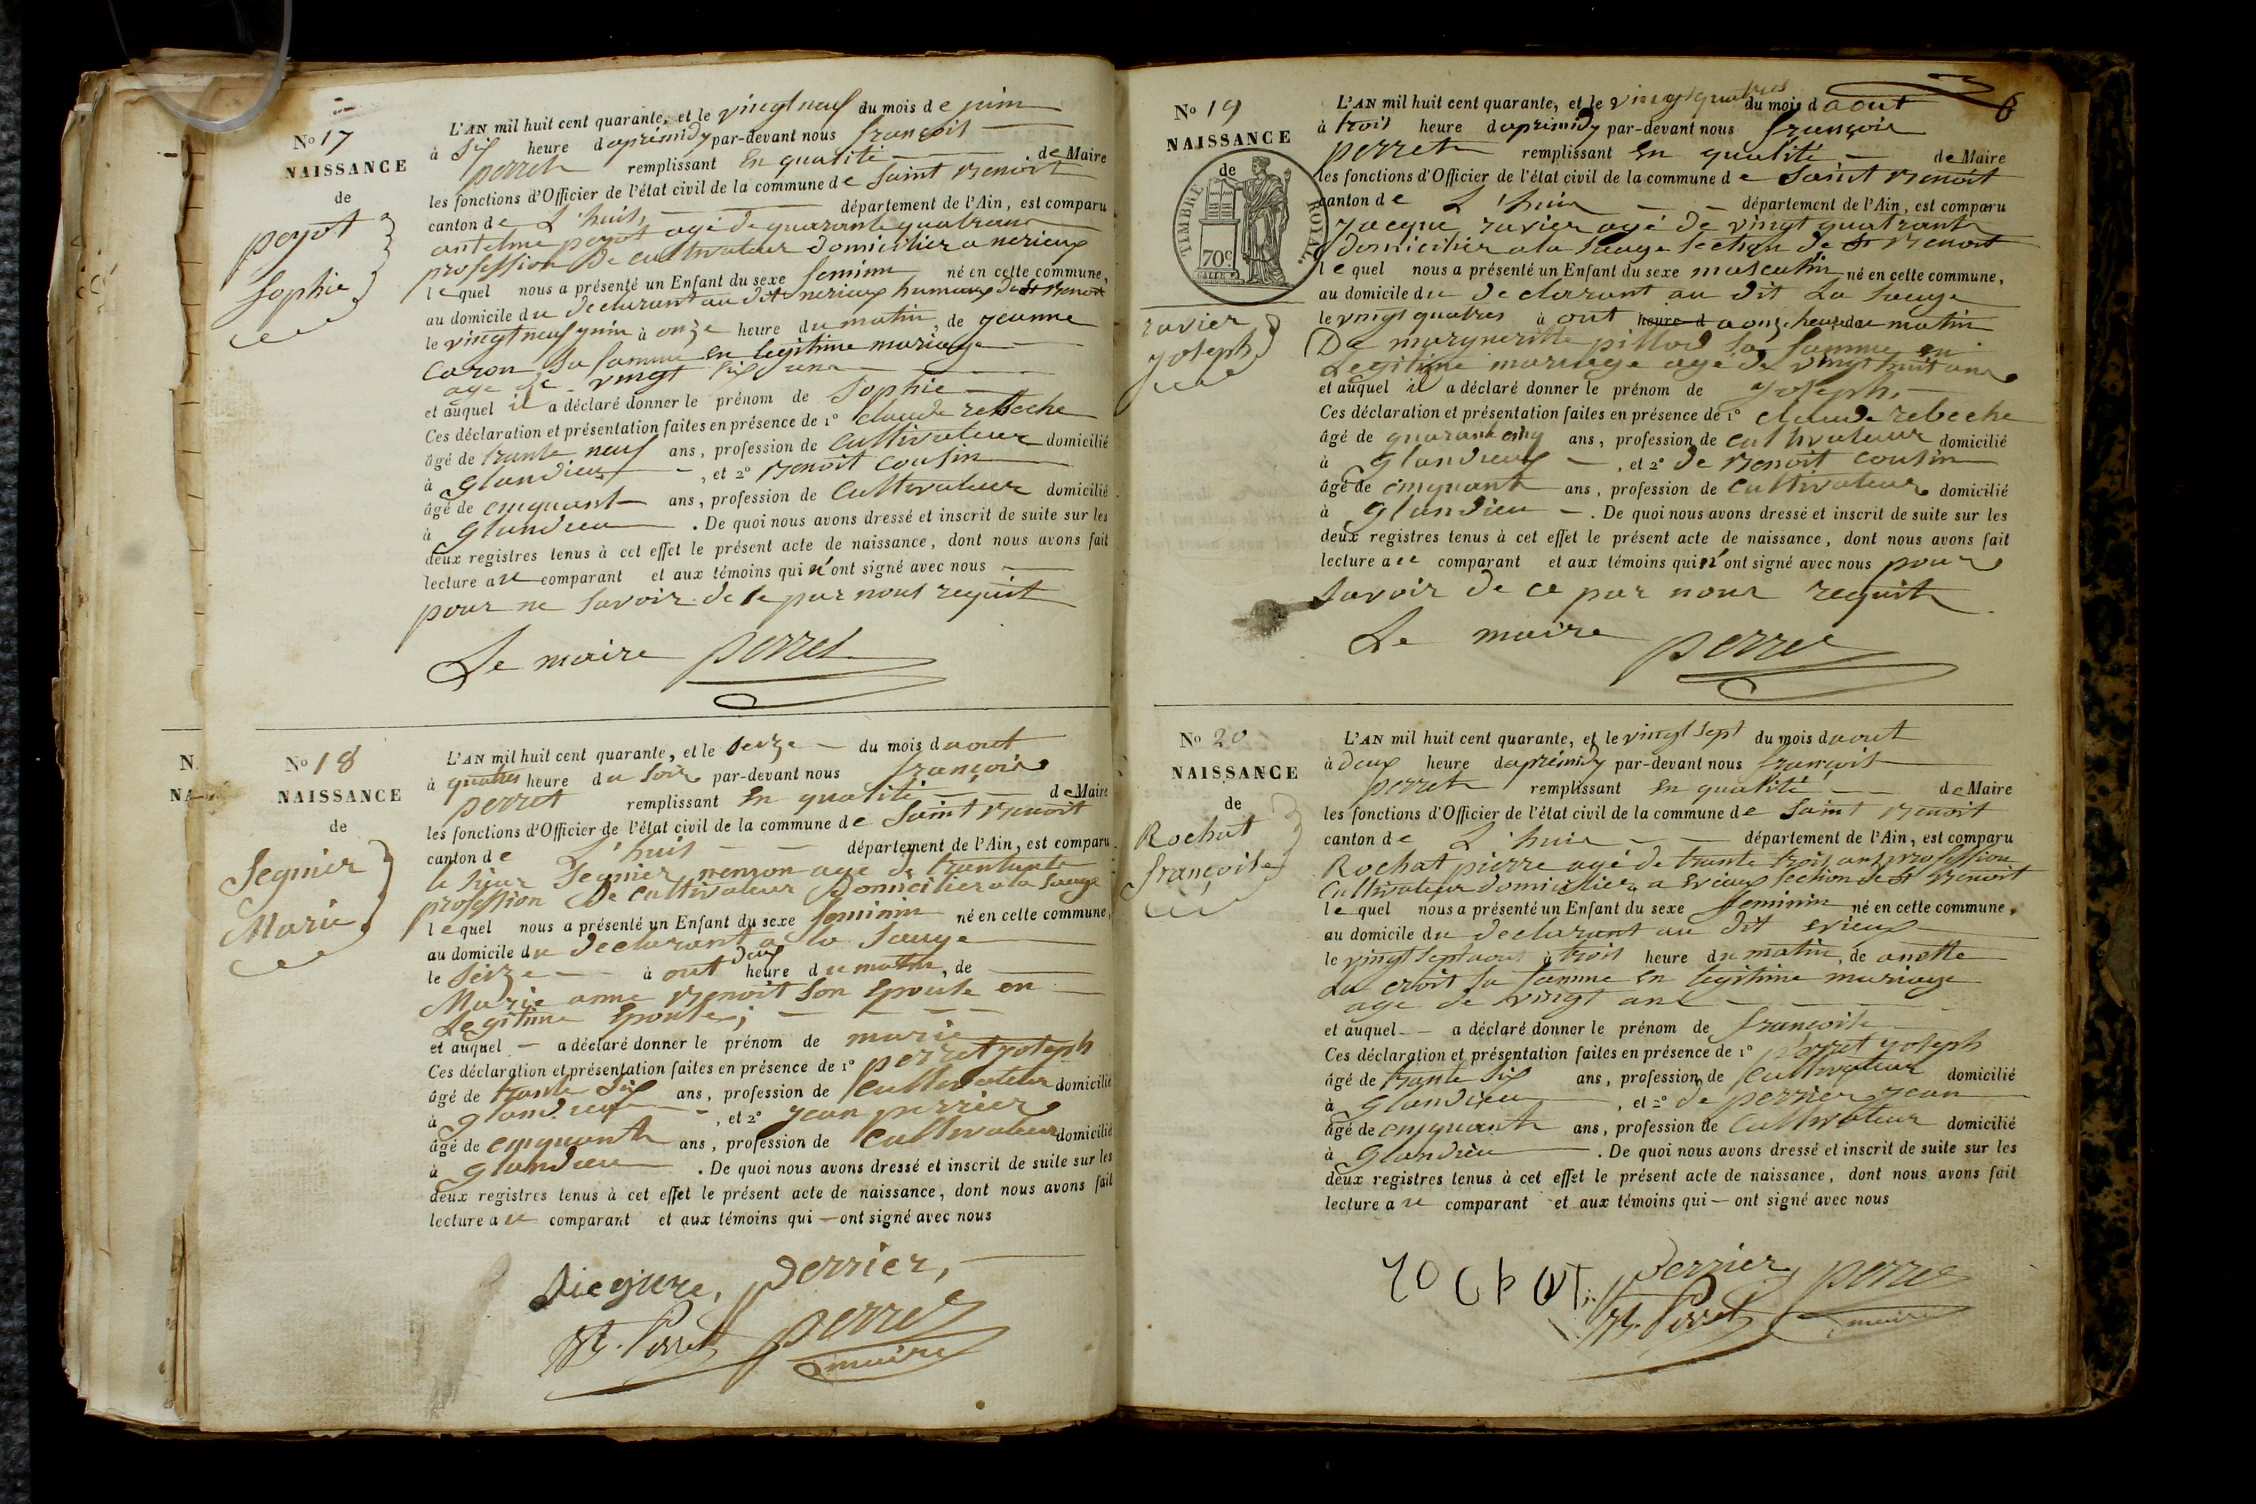 No 17
NAISSANCE
de
peyot
Sophie
L'AN mil huit cent quarante, et le vingt neuf du mois de juin
à six heure d aprèmidy par-devant nous françois
perret remplissant En qualité de Maire
les fonctions d'Officier de l'état civil de la commune de Saint Benoit
canton de L'huis, département de l'Ain, est comparu
antelme peyot agé de quarante quatre ans
profession De cultivateur domicilier a nerieux
lequel nous a présenté un Enfant du sexe feminin né en cette commune,
au domicile du declarant au dit nerieux hameau de St Benoit
le vingt neuf juin à onze heure du matin, de jeanne
caron sa famme en legitime mariage
age de vingt six ans
et auquel il a déclaré donner le prénom de Sophie
Ces déclaration et présentation faites en présence de 1º claude rebeche
âgé de trante neuf ans, profession de cultivateur domicilié
à glandieux, et 2º Benoit cousin
âgé de cinquant ans, profession de Cultivateur domicilié
à glandieu. De quoi nous avons dressé et inscrit de suite sur les
deux registres tenus à cet effet le présent acte de naissance, dont nous avons fait
lecture a ce comparant et aux témoins qui n'ont signé avec nous
pour ne savoir de ce par nous requit
Le maire perret
No 18
NAISSANCE
de
Segnier
Marie
L'AN mil huit cent quarante, et le seize du mois d aout
à quatres heure du soir par-devant nous françois
perret remplissant En qualité de Maire
les fonctions d'Officier de l'état civil de la commune de Saint Benoit
canton de L'huis département de l'Ain, est comparu
le sieur Segnier agé de
profession De cultivateur Domicilier a la Sauge
lequel nous a présenté un Enfant du sexe feminin né en cette commune,
au domicile du declarant a la Sauge
le seize à out deux heure du matin, de
Marie anne Benoit son Epouse en
Legitime Epouse;
et auquel a déclaré donner le prénom de marie
Ces déclaration et présentation faites en présence de 1º perret joseph
âgé de trante six ans, profession de Cultivateur domicilié
à glandieux, et 2º jean perrier
âgé de cinquante ans, profession de Cultivateur domicilié
à glandieu. De quoi nous avons dressé et inscrit de suite sur les
deux registres tenus à cet effet le présent acte de naissance, dont nous avons fait
lecture a ce comparant et aux témoins qui ont signé avec nous
perrier,
Perret perret
maire
6
No 19
NAISSANCE
de
TIMBRE ROYAL.
70c
ravier
joseph
L'AN mil huit cent quarante, et le vingt quatres du mois d aout
à trois heure d aprèmidy par-devant nous françois
perret remplissant En qualité de Maire
les fonctions d'Officier de l'état civil de la commune de Saint Benoit
canton de L'huis département de l'Ain, est comparu
jacque ravier agé de vingt quatrant
domicilier a la Sauge section de St Benoit
lequel nous a présenté un Enfant du sexe masculin né en cette commune,
au domicile du declarant au dit La Sauge
le vingt quatres à out heure d a onze heure du matin
De margueritte sa famme en
Legitime mariage agé de vingt huit ans
et auquel il a déclaré donner le prénom de joseph,
Ces déclaration et présentation faites en présence de 1º claude rebeche
âgé de quarant cinq ans, profession de cultivateur domicilié
à glandieux, et 2º de Benoit cousin
âgé de cinquant ans, profession de Cultivateur domicilié
à glandieu. De quoi nous avons dressé et inscrit de suite sur les
deux registres tenus à cet effet le présent acte de naissance, dont nous avons fait
lecture a ce comparant et aux témoins qui n'ont signé avec nous pour
savoir de ce par nous requit
Le maire perret
No 20
NAISSANCE
de
Rochat
françoise
L'AN mil huit cent quarante, et le vingt sept du mois d aout
à deux heure d aprèmidy par-devant nous françois
perret remplissant En qualité de Maire
les fonctions d'Officier de l'état civil de la commune de Saint Benoit
canton de L'huis département de l'Ain, est comparu
Rochat pierre agé de trante trois ans profession
Cultivateur domicilier a evieux section de St Benoit
lequel nous a présenté un Enfant du sexe feminin né en cette commune,
au domicile du declarant au dit evieux
le vingt sept aout à trois heure du matin, de anette
La croit sa famme en legitime mariage
age de vingt ans
et auquel a déclaré donner le prénom de françoise
Ces déclaration et présentation faites en présence de 1º perret joseph
âgé de trante six ans, profession de cultivateur domicilié
à glandieu, et 2º de perrier jean
âgé de cinquante ans, profession de Cultivateur domicilié
à glandieu. De quoi nous avons dressé et inscrit de suite sur les
deux registres tenus à cet effet le présent acte de naissance, dont nous avons fait
lecture a ce comparant et aux témoins qui ont signé avec nous
rochat perrier perret
Perret maire